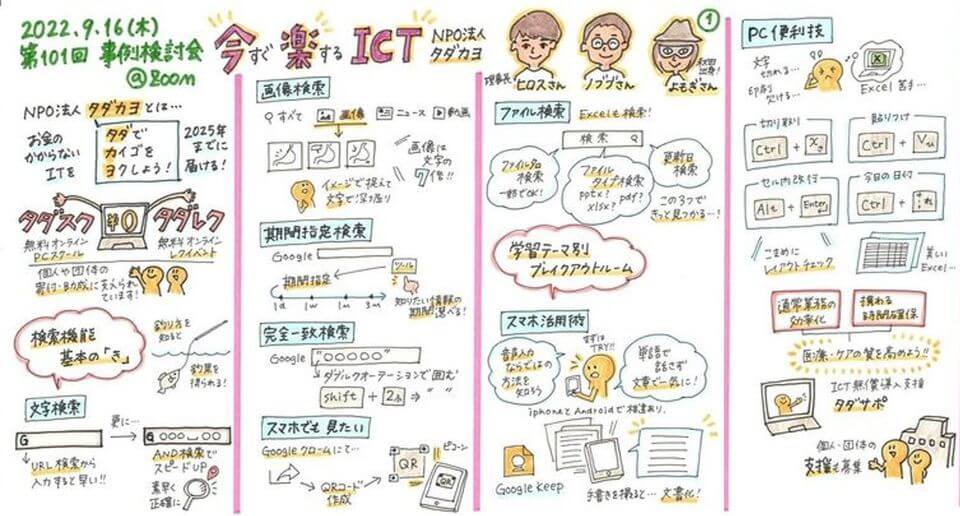 2022.9.16(木)
第101回 事例検討会
@zoom
今すぐ楽するICT
NPO法人
タダカヨ
①
理事長
ヒロスさん
ノブツさん
秋田
出身!
よもぎさん
NPO法人 タダカヨとは…
お金の
かからない
ITを
タダで
カイゴを
ヨクしよう!
2025年
までに
届ける!
タダスク
¥0
タダレク
無料オンライン
PCスクール
無料オンライン
レクイベント
個人や団体の
寄付・助成に支えられ
ています!
検索機能
基本の「き」
釣り方を
知ると
釣果を
得られる!
文字検索
G
更に…
URL検索から
入力すると早い!!
AND検索で
スピードUP
素早く
正確に
画像検索
すべて
画像
ニュース
動画
画像は
文字の
7倍!!
イメージで捉えて
文字で深掘り
期間指定検索
Google
期間指定
ツール
1d
1w
1m
3m
知りたい情報の
期間選べる!
完全一致検索
Google
"○○○○○"
ダブルクオーテーションで囲む
shift + 2ふ → " "
スマホでも見たい
Googleクロームにて…
QRコード
作成
QR
ピコーン
QR
ファイル検索
Excelも検索!
検索
ファイル名
検索
一発でOK!
ファイル
タイプ検索
pptx?
pdf?
xlsx?
更新日
検索
この3つで
きっと見つかる…!
学習テーマ別
ブレイクアウトルーム
スマホ活用術
音声入力
ならではの
方法を
知ろう
まずは
TRY!!
単語で
話さず
文章で一気に!
iphoneとAndroidで相違あり。
Google Keep
手書きを撮ると… 文書化!
PC便利技
文字
切れる…
印刷
欠ける…
X
Excel 苦手…
切り取り
Ctrl + X
貼りつけ
Ctrl + V
セル内改行
Alt + Enter
今日の日付
Ctrl + ;
こまめに
レイアウトチェック
美しい
Excel…
通常業務の
効率化
携わる
時間確保
医療・ケアの質を高めよう!!
ICT無償導入支援
タダサポ
個人・団体の
支援も募集